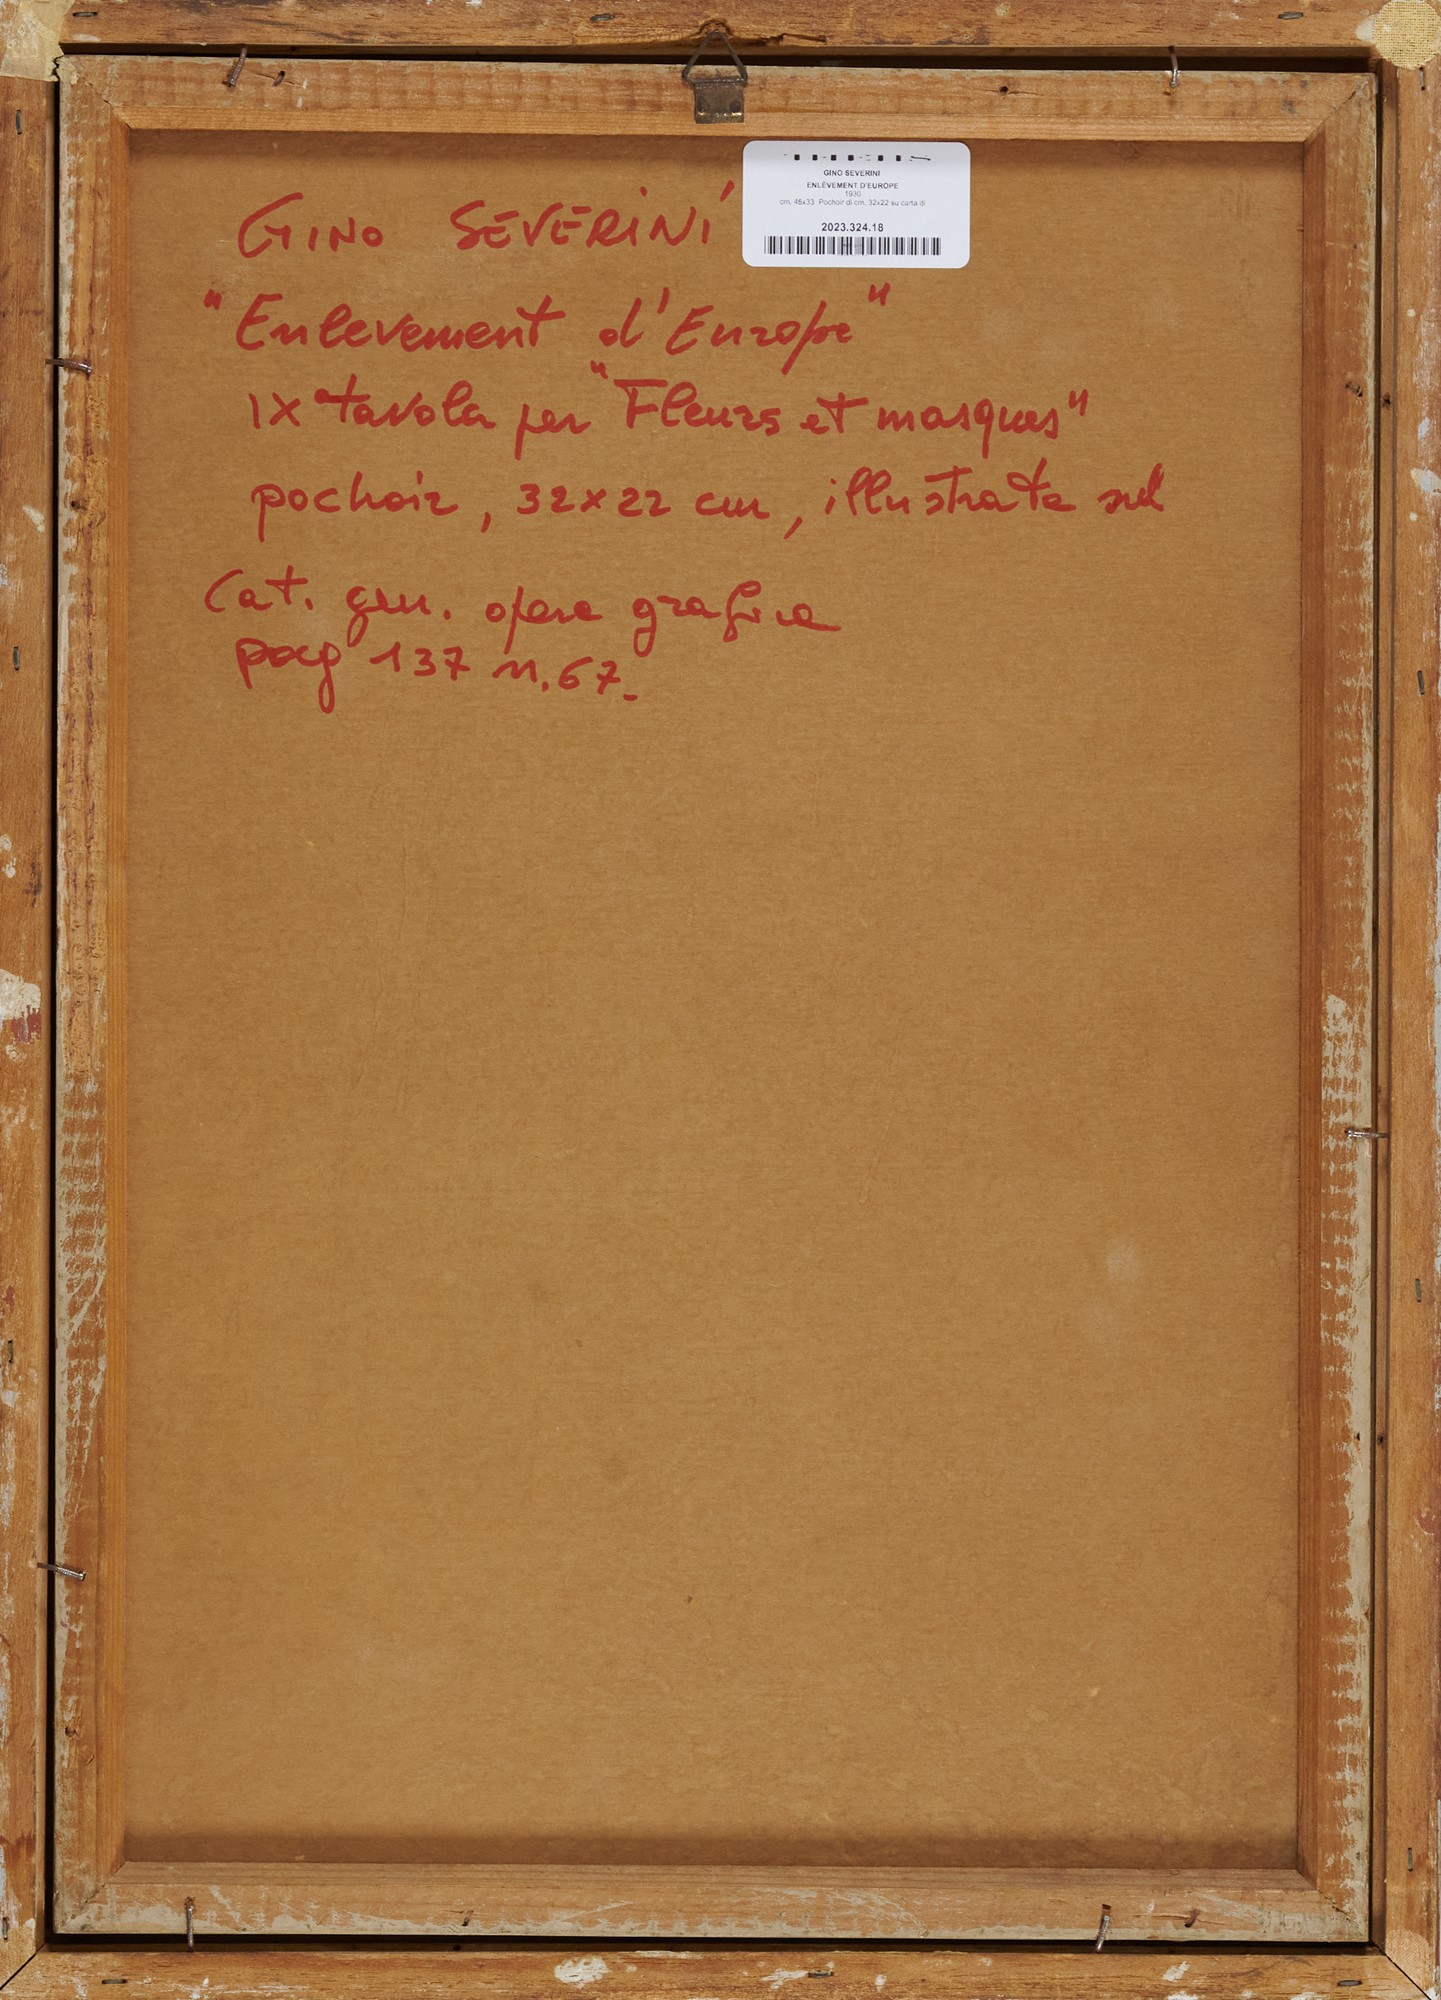 GINO SEVERINI
ENLÈVEMENT D'EUROPE
1930
cm. 46x33 Pochoir di cm. 32x22 su carta di
2023.324.18
GINO SEVERINI
"Enlevement d'Europe"
IXª tavola per "Fleurs et masques"
pochoir, 32x22 cm, illustrata sul
Cat. gen. opera grafica
pag 137 n. 67.-